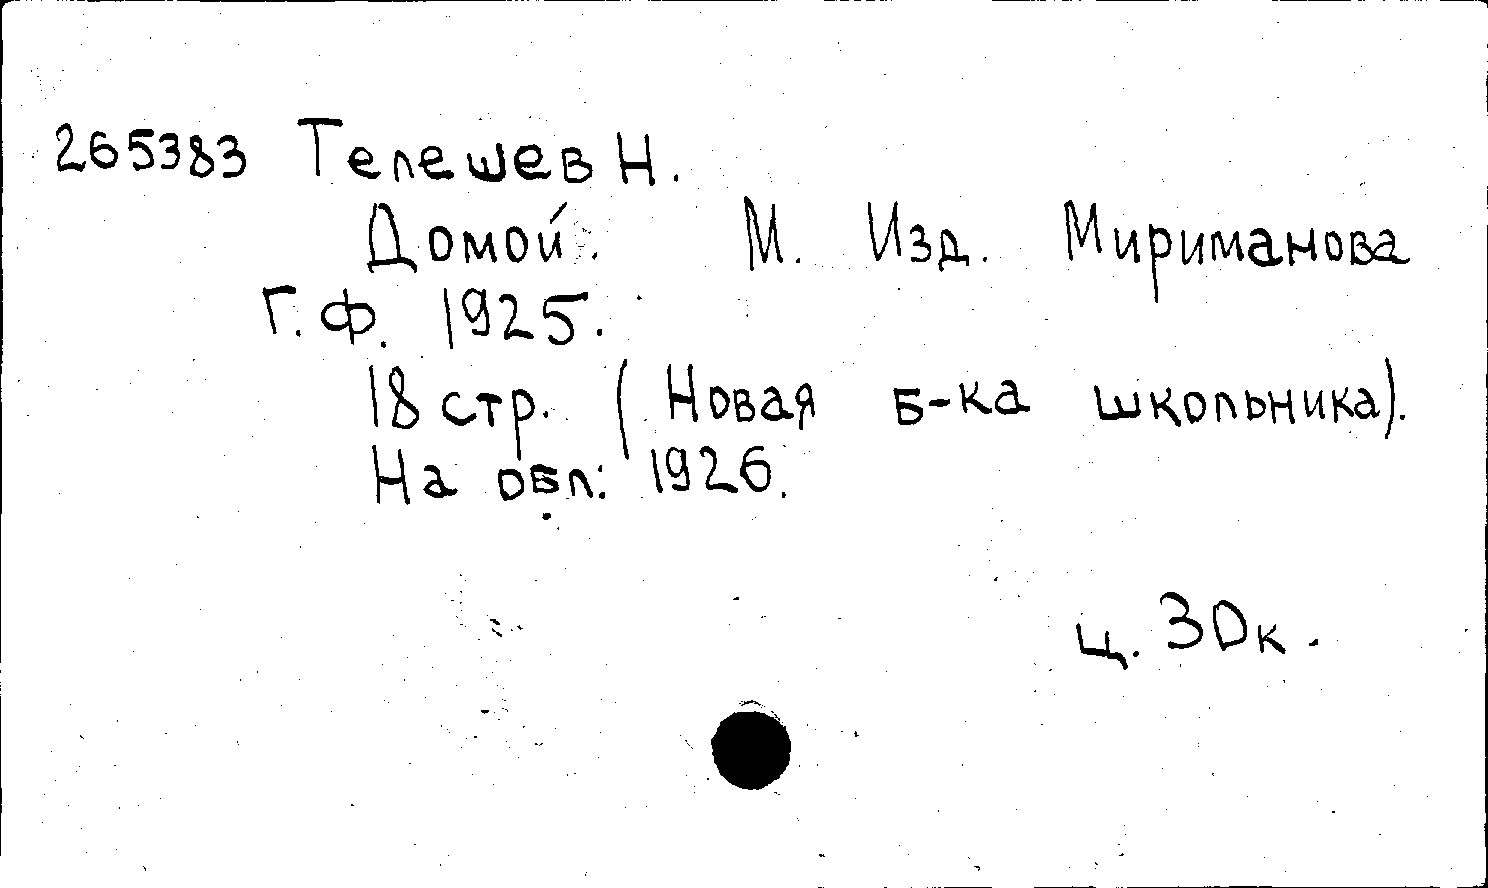 265383 Телешев Н.
Домой. М. Изд. Мириманова
Г.Ф. 1925.
18 стр. (Новая б-ка школьника).
На обл: 1926.
ц. 30к.